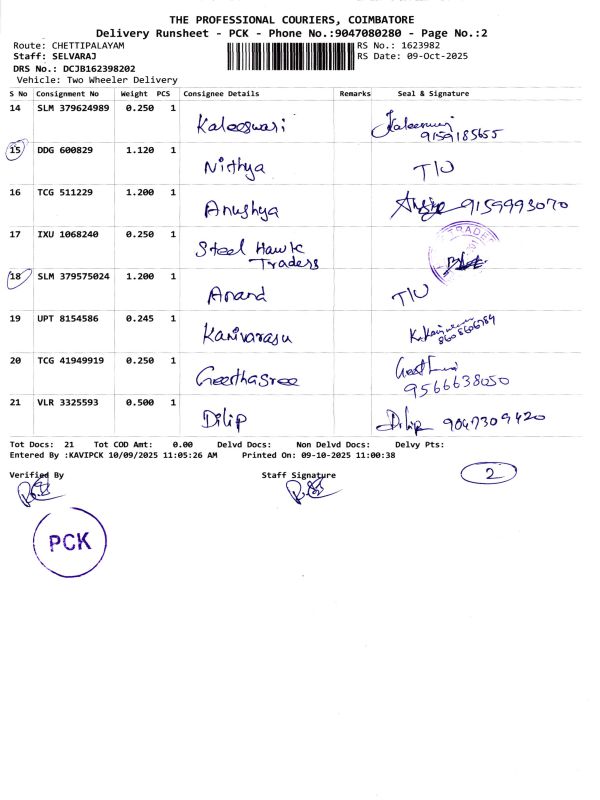 THE PROFESSIONAL COURIERS, COIMBATORE
Delivery Runsheet - PCK - Phone No.:9047080280 - Page No.:2
Route: CHETTIPALAYAM RS No.: 1623982
Staff: SELVARAJ RS Date: 09-Oct-2025
DRS No.: DCJB162398202
Vehicle: Two Wheeler Delivery
S No Consignment No Weight PCS Consignee Details Remarks Seal & Signature
14 SLM 379624989 0.250 1
Kaleeswari
9159185655
15 DDG 600829 1.120 1
Nithya T/U
16 TCG 511229 1.200 1
Anushya 9159993070
17 IXU 1068240 0.250 1
Steel Hawk
Traders
TRADE
18 SLM 379575024 1.200 1
Anand T/U
19 UPT 8154586 0.245 1
Kanivarasu
8608606789
20 TCG 41949919 0.250 1
Geerthasree
9566638050
21 VLR 3325593 0.500 1
Dilip Dilip 9047309420
Tot Docs: 21 Tot COD Amt: 0.00 Delvd Docs: Non Delvd Docs: Delvy Pts:
Entered By :KAVIPCK 10/09/2025 11:05:26 AM Printed On: 09-10-2025 11:00:38
Verified By Staff Signature 2
PCK